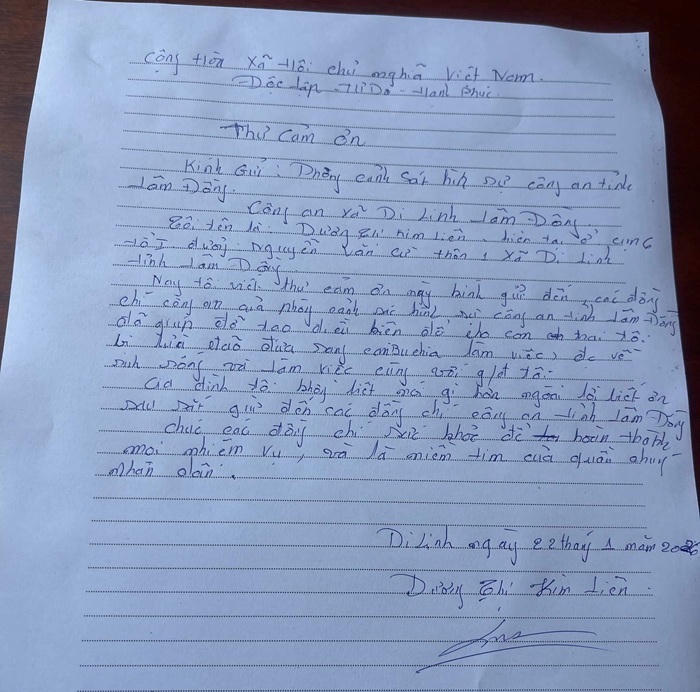 Cộng Hòa Xã Hội chủ nghĩa Việt Nam.
Độc lập - Tự Do - Hạnh Phúc.
Thư Cảm ơn
Kính Gửi : Phòng cảnh Sát hình sự công an tỉnh
Lâm Đồng.
Công an xã Di Linh Lâm Đồng
Tôi tên là: Dương Thị Kim Liên, hiện tại ở
tổ 1 đường Nguyễn Văn Cừ thôn 1 xã Di Linh
tỉnh Lâm Đồng
Nay tôi viết thư cảm ơn này kính gửi đến các đồng
chí công an của phòng cảnh sát hình sự công an tỉnh Lâm Đồng
đã giúp đỡ tạo điều kiện để cho con trai tôi.
bị lừa đảo đưa sang CanBuChia làm việc, đc về
sinh sống và làm việc cùng với gđ tôi.
Gia đình tôi không biết nói gì hơn ngoài lời biết ơn
sâu sắc gửi đến các đồng chí công an tỉnh Lâm Đồng
Chúc các đồng chí sức khỏe để hoàn thành
mọi nhiệm vụ, và là niềm tin của quần chúng
nhân dân.
Di Linh ngày 22 tháng 1 năm 2026
Dương Thị Kim Liên.